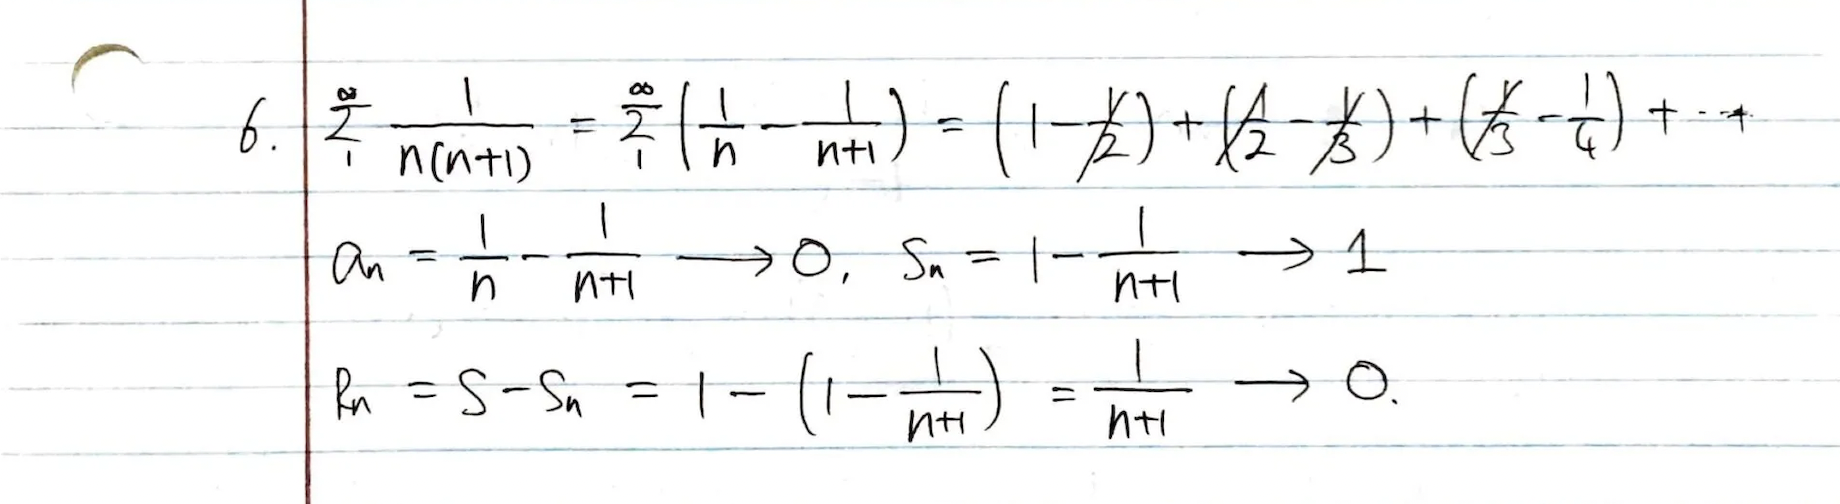 6. ∞Σ1 1/n(n+1) = ∞Σ1 (1/n - 1/n+1) = (1 - 1/2) + (1/2 - 1/3) + (1/3 - 1/4) + ···
an = 1/n - 1/n+1 → 0, Sn = 1 - 1/n+1 → 1
Rn = S - Sn = 1 - (1 - 1/n+1) = 1/n+1 → 0.